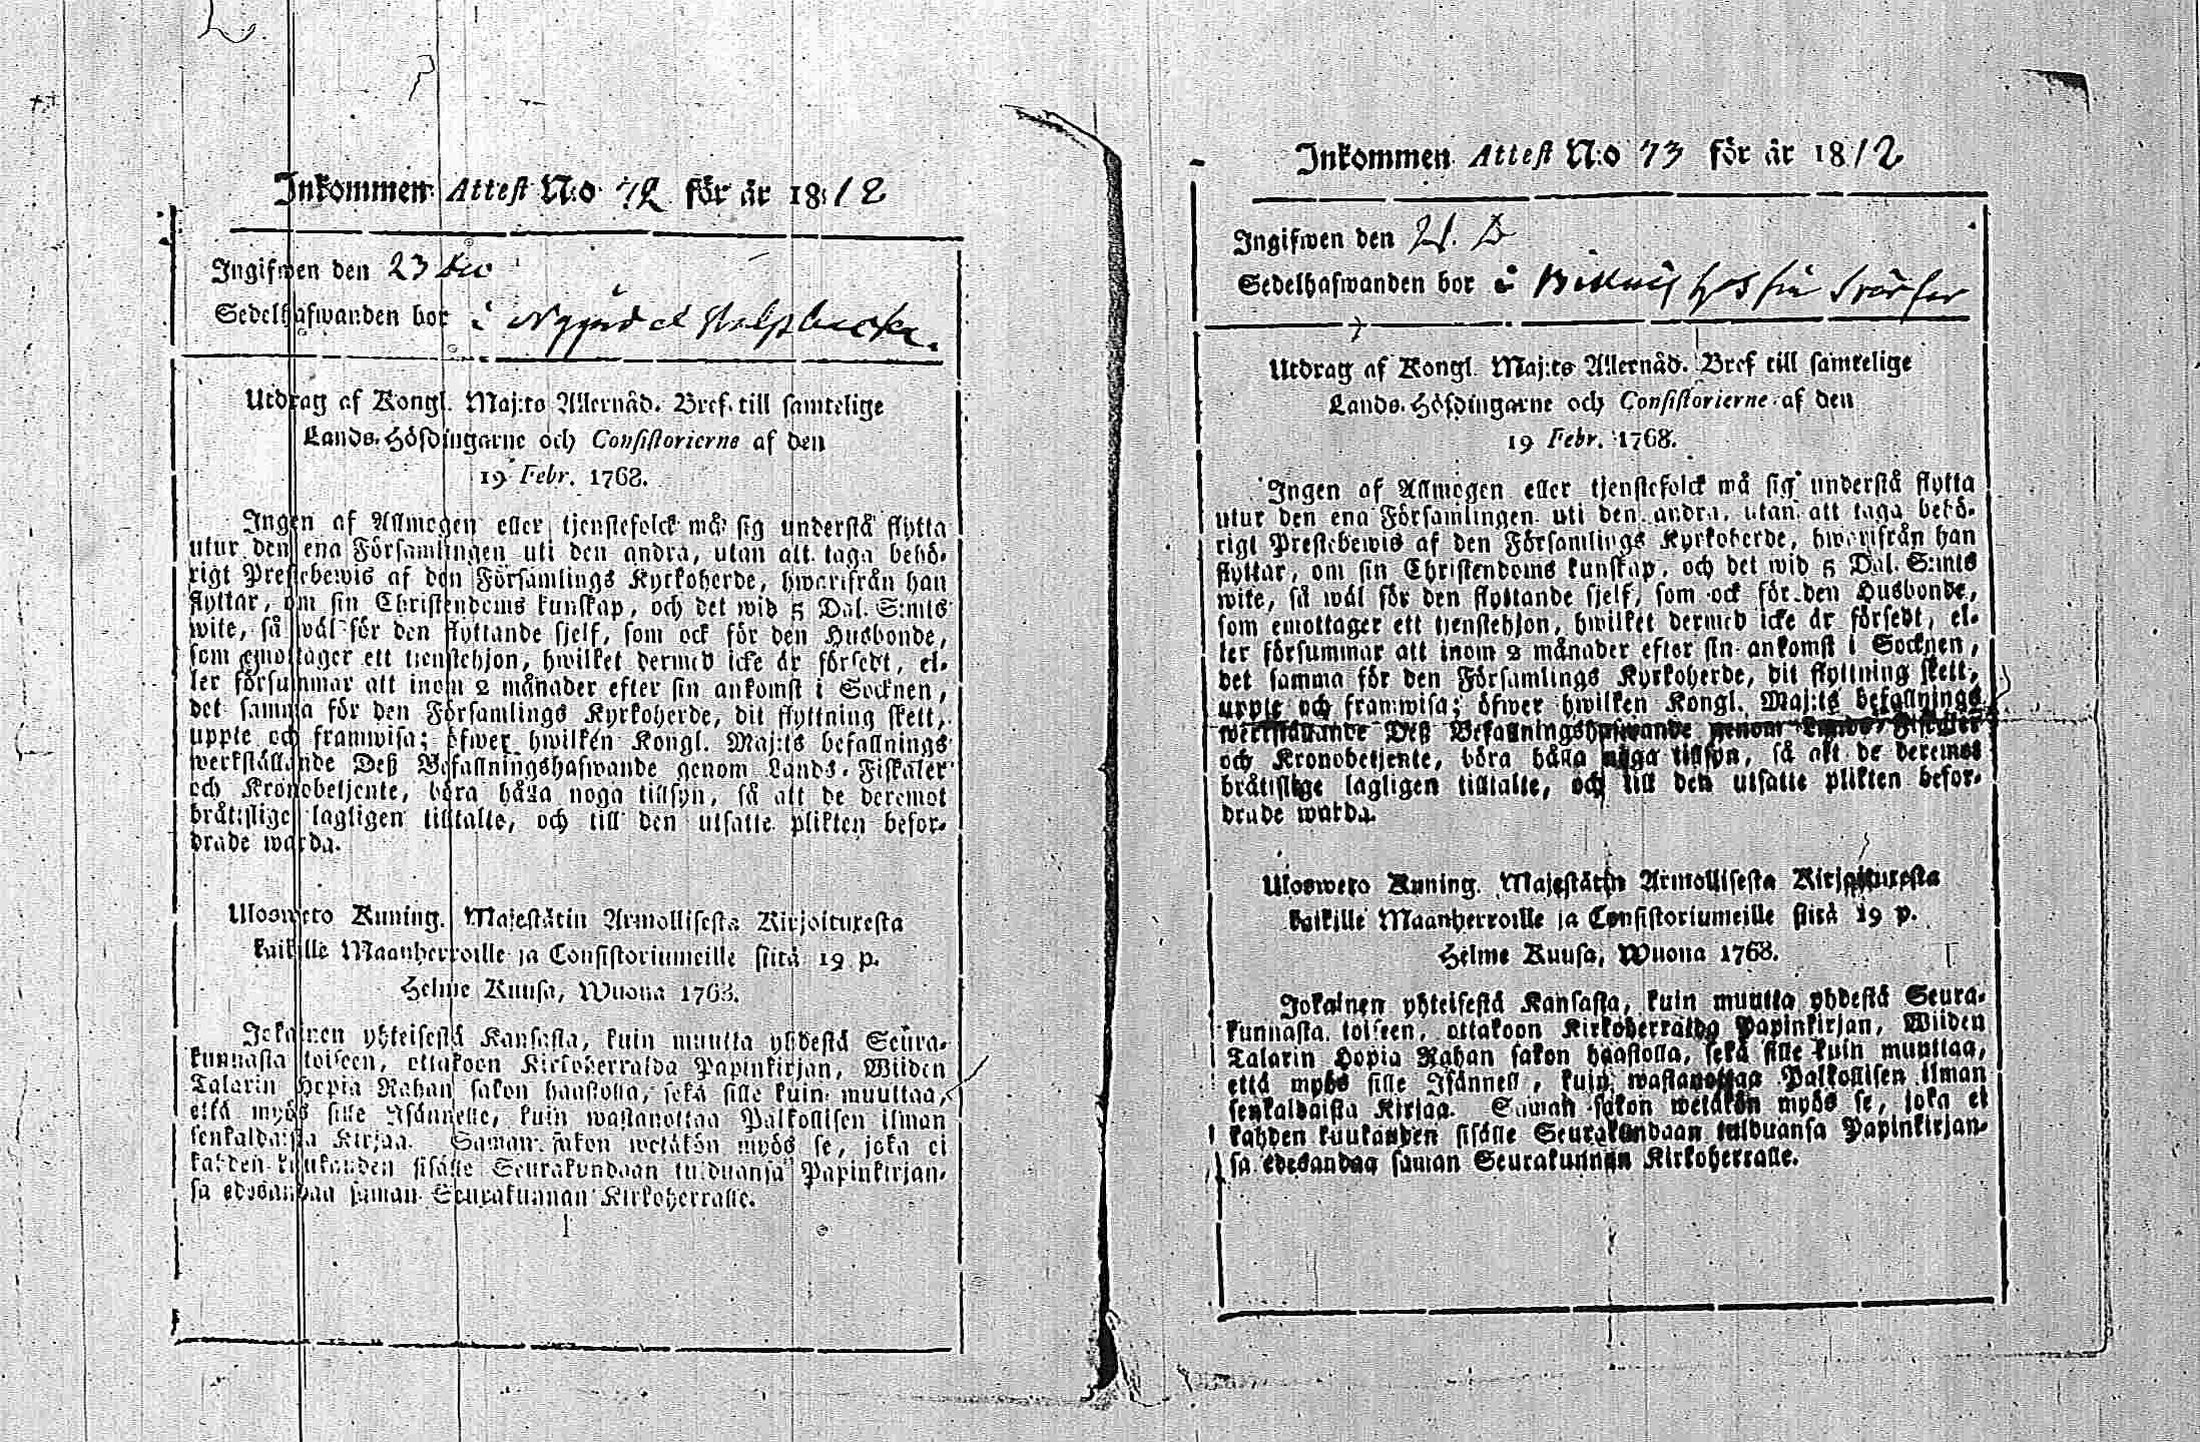 Inkommen Attest N:o 72 för år 1812
Ingifwen den 23 Dec
Sedelhafwanden bor i
Utdrag af Kongl. Maj:ts Allernåd. Bref till samtelige
Lands-Höfdingarne och Consistorierne af den
19 Febr. 1768.
Ingen af Allmogen eller tjenstefolck må sig understå flytta
utur den ena Församlingen uti den andra, utan att taga behö-
rigt Prestebewis af den Församlings Kyrkoherde, hwarifrån han
flyttar, om sin Christendoms kunskap, och det wid 5 Dal. S:mts
wite, så wäl för den flyttande sjelf, som ock för den Husbonde,
som emottager ett tienstehjon, hwilket dermed icke är försedt, el-
ler försummar att inom 2 månader efter sin ankomst i Socknen,
det samma för den Församlings Kyrkoherde, dit flyttning skett,
uppte och framwisa; öfwer hwilken Kongl. Maj:ts befallnings
werkställande Deß Befallningshafwande genom Lands-Fiskaler
och Kronobetjente, böra hålla noga tillsyn, så att de deremot
bråtislige lagligen tilltalte, och till den utsatte plikten befor-
drade warda.
Ulosweto Kuning. Majestätin Armollisesta Kirjoituxesta
kaikille Maanherroille ja Consistoriumeille siitä 19 p.
Helme Kuusa, Wuona 1768.
Jokainen yhteisestä Kansasta, kuin muutta yhdestä Seura-
kunnasta toiseen, ottakoon Kirkoherralda Papinkirjan, Wiiden
Talarin Hopia Rahan sakon haastolla, sekä sille kuin muuttaa,
että myös sille Isännelle, kuin wastanottaa Palkollisen ilman
senkaldaista Kirjaa. Saman sakon wetäkön myös se, joka ei
kahden kuukauden sisälle Seurakundaan tulduansa Papinkirjan-
sa edesandaa saman Seurakunnan Kirkoherralle.
Inkommen Attest N:o 73 för år 1812
Ingifwen den
Sedelhafwanden bor i hos sin
Utdrag af Kongl. Maj:ts Allernåd. Bref till samtelige
Lands-Höfdingarne och Consistorierne af den
19 Febr. 1768.
Ingen af Allmogen eller tjenstefolck må sig understå flytta
utur den ena Församlingen uti den andra, utan att taga behö-
rigt Prestebewis af den Församlings Kyrkoherde, hwarifrån han
flyttar, om sin Christendoms kunskap, och det wid 5 Dal. S:mts
wite, så wäl för den flyttande sjelf, som ock för den Husbonde,
som emottager ett tienstehjon, hwilket dermed icke är försedt, el-
ler försummar att inom 2 månader efter sin ankomst i Socknen,
det samma för den Församlings Kyrkoherde, dit flyttning skett,
uppte och framwisa; öfwer hwilken Kongl. Maj:ts befallnings
werkställande Deß Befallningshafwande genom Lands-Fiskaler
och Kronobetjente, böra hålla noga tillsyn, så att de deremot
bråtislige lagligen tilltalte, och till den utsatte plikten befor-
drade warda.
Ulosweto Kuning. Majestätin Armollisesta Kirjoituxesta
kaikille Maanherroille ja Consistoriumeille siitä 19 p.
Helme Kuusa, Wuona 1768.
Jokainen yhteisestä Kansasta, kuin muutta yhdestä Seura-
kunnasta toiseen, ottakoon Kirkoherralda Papinkirjan, Wiiden
Talarin Hopia Rahan sakon haastolla, sekä sille kuin muuttaa,
että myös sille Isännell, kuin wastanottaa Palkollisen ilman
senkaldaista Kirjaa. Saman sakon wetäkön myös se, joka ei
kahden kuukauden sisälle Seurakundaan tulduansa Papinkirjan-
sa edesandaa saman Seurakunnan Kirkoherralle.